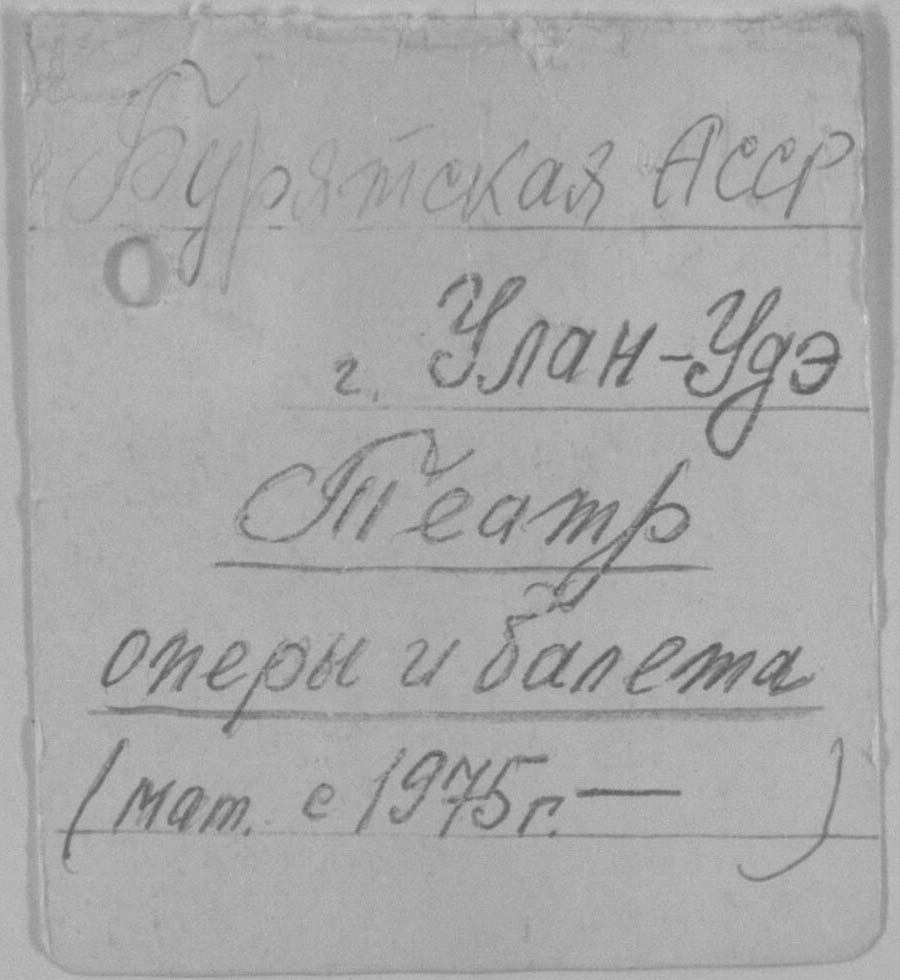 Бурятская АССР
г. Улан-Удэ
Театр
оперы и балета
(мат. с 1975 г. — )